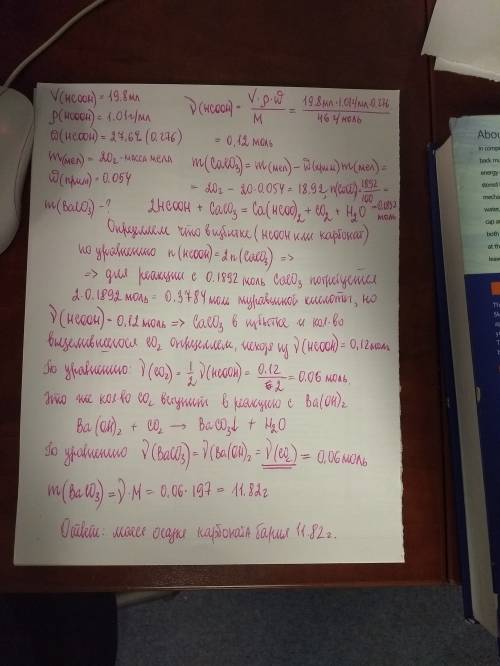 V(HCOOH) = 19.8мл
ρ(HCOOH) = 1.01г/мл
ω(HCOOH) = 27,6% (0.276)
m(мел) = 20г - масса мела
ω(прим) = 0.054
m(BaCO3) - ?
ν(HCOOH) = V·ρ·ω / M = 19.8мл·1.01г/мл·0.276 / 46 г/моль
= 0,12 моль
m(CaCO3) = m(мел) - ω(прим)·m(мел) =
= 20г - 20·0.054 = 18.92, n(CaCO3) = 18.92/100 =
= 0.1892 моль
2HCOOH + CaCO3 = Ca(HCOO)2 + CO2 + H2O
Определяем что в избытке (HCOOH или карбонат)
по уравнению n(HCOOH) = 2n(CaCO3) =>
=> для реакции с 0.1892 моль CaCO3 потребуется
2·0.1892 моль = 0.3784 моль муравьиной кислоты, но
ν(HCOOH) = 0.12 моль => CaCO3 в избытке и кол-во
выделившегося CO2 определяем, исходя из ν(HCOOH) = 0,12моль
По уравнению: ν(CO2) = 1/2 ν(HCOOH) = 0.12/2 = 0.06 моль.
Это же кол-во CO2 вступит в реакцию с Ba(OH)2
Ba(OH)2 + CO2 → BaCO3↓ + H2O
По уравнению ν(BaCO3) = ν(Ba(OH)2) = ν(CO2) = 0,06моль
m(BaCO3) = ν·M = 0.06·197 = 11.82г
Ответ: масса осадка карбоната бария 11.82г.